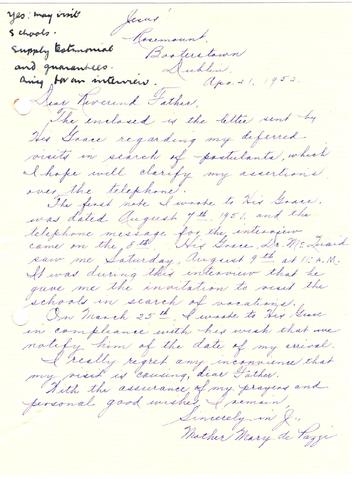 Yes: may visit
Schools.
Supply testimonial
and guarantees.
Jesus'
Rosemount,
Booterstown
Dublin.
Apr. 21, 1952.
Dear Reverend Father,
The enclosed is the letter sent by
His Grace regarding my deferred
visits in search of postulants, which
I hope will clarify my assertions
over the telephone.
The first note I wrote to His Grace,
was dated August 7th, 1951, and the
telephone message for the interview
came on the 8th. His Grace, Dr. McQuaid
saw me Saturday, August 9th at 11 A.M.
It was during this interview that he
gave me the invitation to visit the
schools in search of vocations.
On March 25th, I wrote to His Grace
in compliance with his wish that we
notify him of the date of my arrival.
I really regret any inconvience that
my visit is causing, dear Father.
With the assurance of my prayers and
personal good wishes, I remain,
Sincerely in J.,
Mother Mary de Pazzi